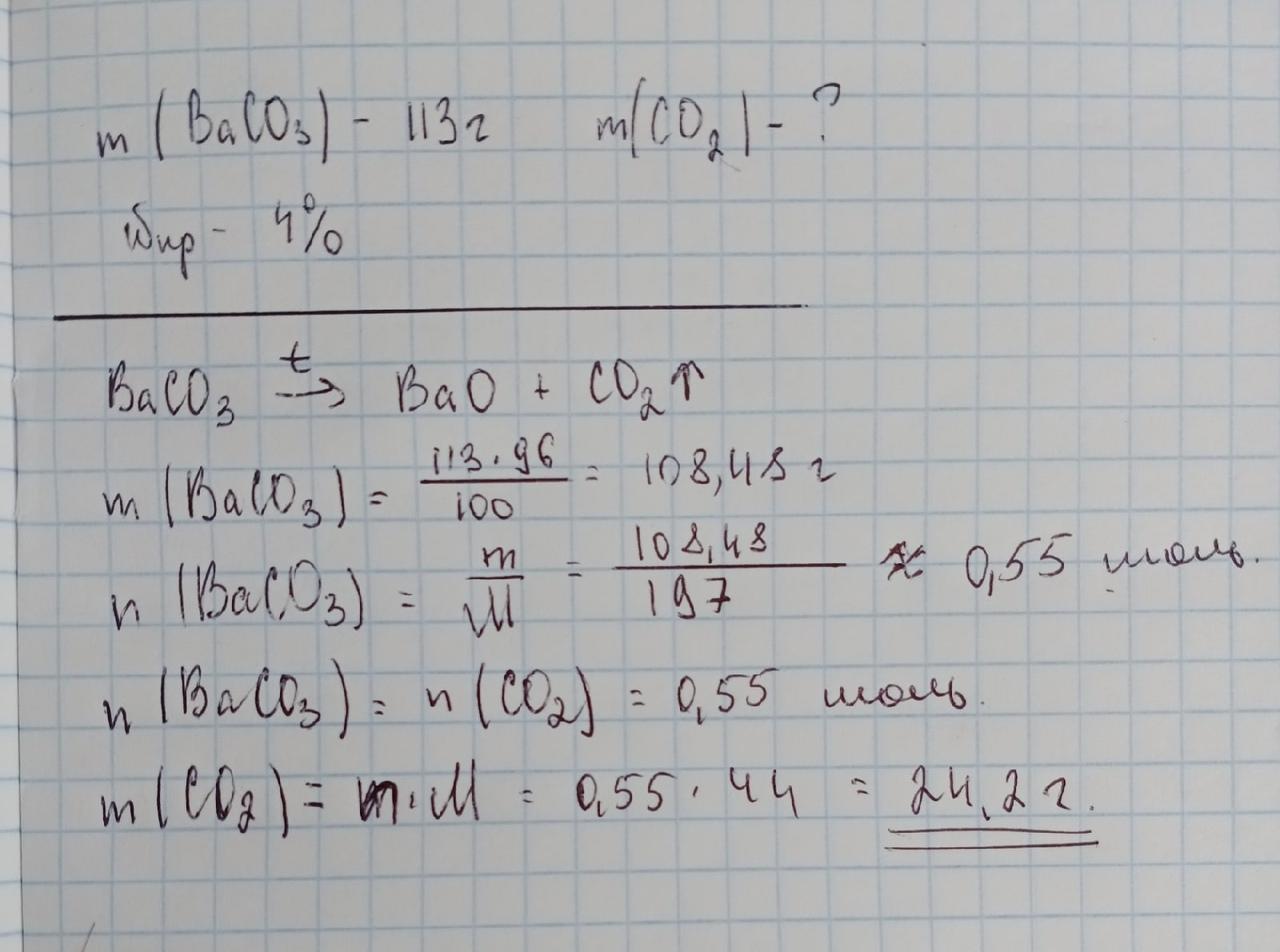 m (BaCO₃) - 113г m(CO₂) - ?
ωпр - 4%
BaCO₃ t→ BaO + CO₂↑
m (BaCO₃) = 113·96/100 = 108,48 г
n (BaCO₃) = m/M = 108,48/197 ≈ 0,55 моль.
n (BaCO₃) = n (CO₂) = 0,55 моль.
m (CO₂) = n·M = 0,55 · 44 = 24,2 г.